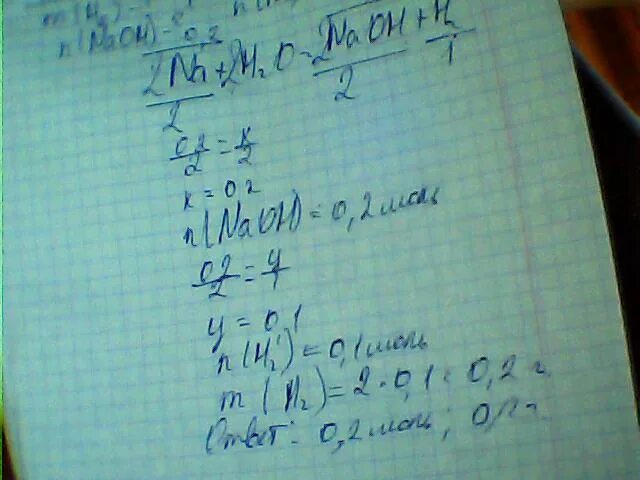 m(H₂)
n(NaOH) - 0,2
2Na + 2H₂O = 2NaOH + H₂
2 2 1
0,2/2 = x/2
x = 0,2
n(NaOH) = 0,2 моль
0,2/2 = y/1
y = 0,1
n(H₂) = 0,1 моль
m(H₂) = 2 · 0,1 = 0,2 г.
Ответ: 0,2 моль; 0,2 г.